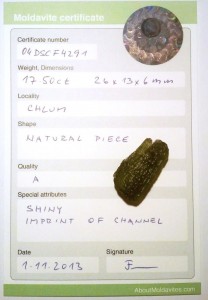 Moldavite certificate
Certificate number
04DSCF4291
Weight, Dimensions
17.50ct 26x13x6mm
Locality
CHLUM
Shape
NATURAL PIECE
Quality
A
Special attributes
SHINY
IMPRINT OF CHANNEL
Date
Signature
1.11.2013
AboutMoldavites.com